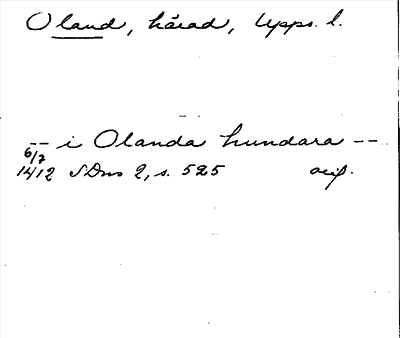 Oland, härad, Upps. l.
-- i Olanda hundara --
6/7
1412 SDns 2, s. 525 avskr.